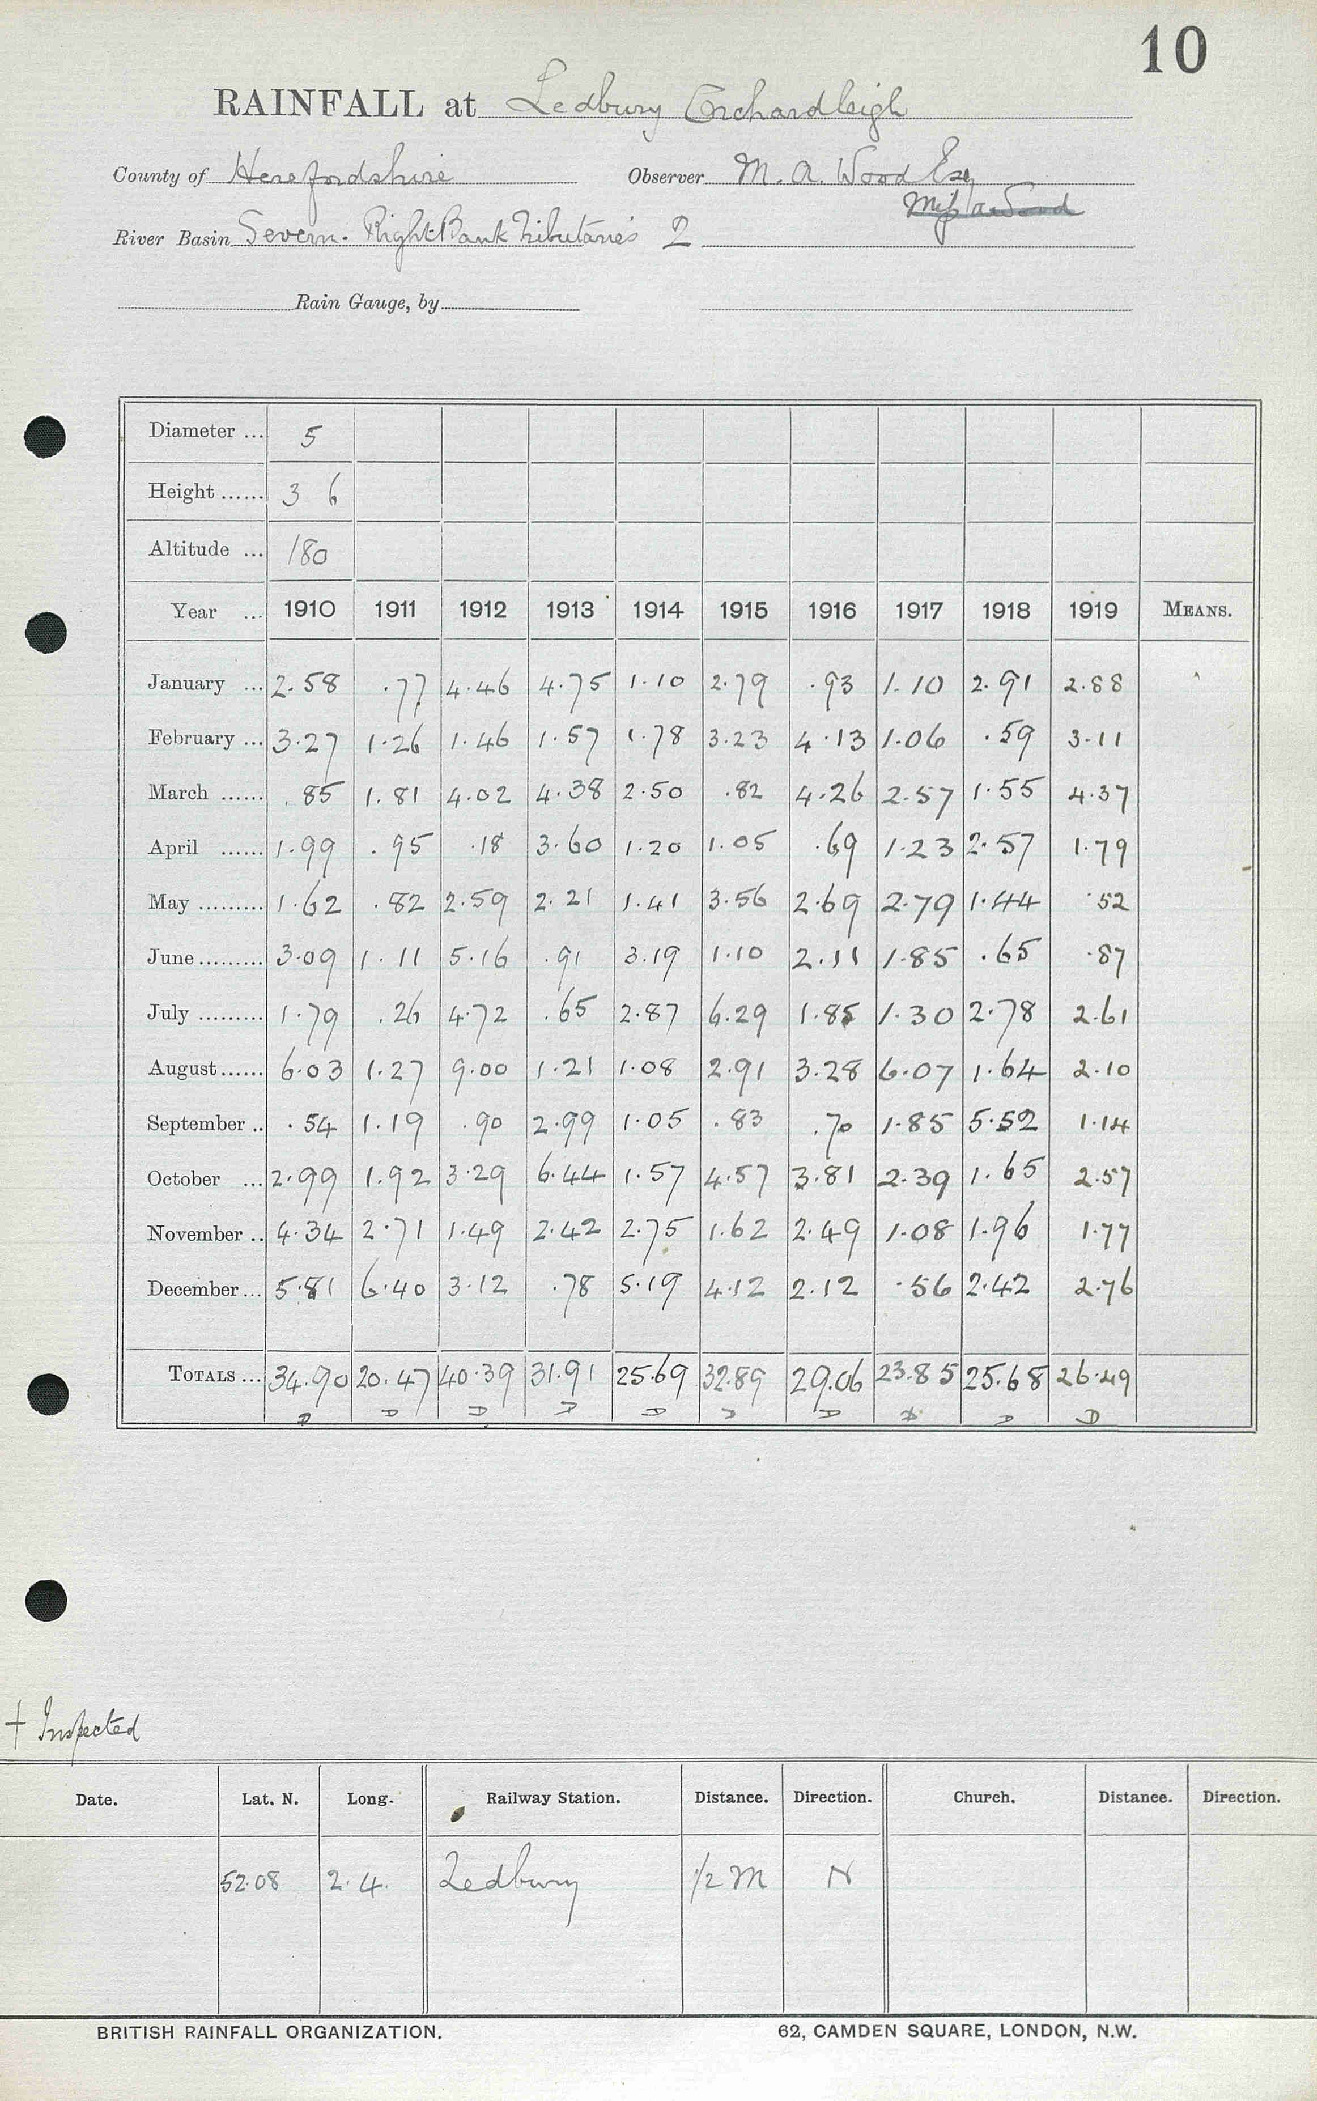 10
RAINFALL at Ledbury Orchardleigh
County of Herefordshire Observer M. A. Wood Esq
River Basin Severn. Right Bank Tributaries 2
Rain Gauge, by
Diameter ... 5
Height ...... 3 6
Altitude ... 180
Year ... 1910 1911 1912 1913 1914 1915 1916 1917 1918 1919 MEANS.
January ... 2.58 .77 4.46 4.75 1.10 2.79 .93 1.10 2.91 2.88
February ... 3.27 1.26 1.46 1.57 1.78 3.23 4.13 1.06 .59 3.11
March ...... .85 1.81 4.02 4.38 2.50 .82 4.26 2.57 1.55 4.37
April ...... 1.99 .95 .18 3.60 1.20 1.05 .69 1.23 2.57 1.79
May ......... 1.62 .82 2.59 2.21 1.41 3.56 2.69 2.79 1.44 .52
June ......... 3.09 1.11 5.16 .91 3.19 1.10 2.11 1.85 .65 .87
July ......... 1.79 .26 4.72 .65 2.87 6.29 1.85 1.30 2.78 2.61
August ...... 6.03 1.27 9.00 1.21 1.08 2.91 3.28 6.07 1.64 2.10
September .. .54 1.19 .90 2.99 1.05 .83 .70 1.85 5.52 1.14
October ... 2.99 1.92 3.29 6.44 1.57 4.57 3.81 2.39 1.65 2.57
November .. 4.34 2.71 1.49 2.42 2.75 1.62 2.49 1.08 1.96 1.77
December ... 5.81 6.40 3.12 .78 5.19 4.12 2.12 .56 2.42 2.76
TOTALS ... 34.90 20.47 40.39 31.91 25.69 32.89 29.06 23.85 25.68 26.49
D D D D D D D D D D
† Inspected
Date. Lat. N. Long. Railway Station. Distance. Direction. Church. Distance. Direction.
52.08 2.4. Ledbury 1/2 M N
BRITISH RAINFALL ORGANIZATION. 62, CAMDEN SQUARE, LONDON, N.W.